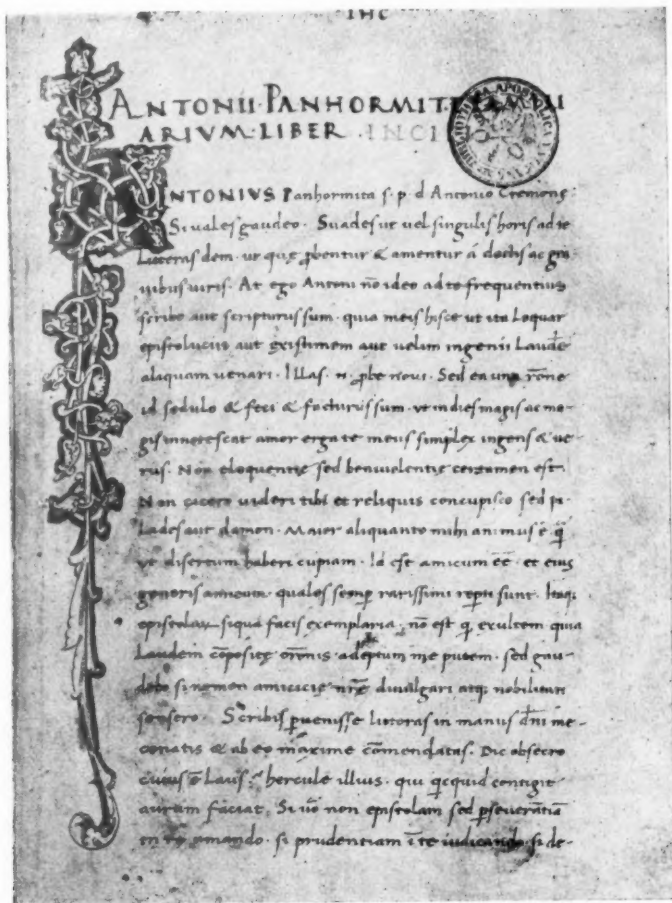 IHC
ANTONII·PANHORMITE
ARIVM·LIBER·INCI
NTONIVS Panhormita s·p·d Antonio Cremone͂
Si uales gaudeo· Suades ut uel singulis horis ad te
Litteras dem· ut quę ꝓbentur & amentur á doctis ac gra
uibus uiris. At ego Antoni nō ideo ad te frequentius
scribo aut scripturus sum· quia meis hisce ut ita Loquar
epistoluciis aut existimem aut uelim ingenii Laudē
aliquam uenari· Illas· n· ꝓbe noui· Sed ea una rōne
id sedulo & feci & facturus sum· ut indies magis ac ma
gis innotescat amor erga te meus simplex ingens & ue
rus· Non eloquentię sed beniuolentię certamen est·
Non cicero uideri tibi et reliquis concupisco sed pi
Lades aut damon· Maior aliquanto mihi animus ē q̄
ut disertum haberi cupiam· Id est amicum eē· et eius
generis amicum· quales semꝑ rarissimi repti sunt· Itaqꝫ
epistolaꝝ siqua facis exemplaria· nō est q̄ exultem quia
Laudem cōpositę adeptum me putem· sed gau
debo si nomen amicicię nr̄ę diuulgari atqꝫ nobilitari
sensero· Scribis ꝑuenisse litteras in manus dn̄i me
cenatis & ab eo maxime cōmendatas. Dic obsecro
cuius ē Laus? hercule illius· qui quicquid contigit
aurum faciat. Si uō non epistolam sed ꝑseuerātiā
in te amando· si prudentiam ī te iudicando· si de-